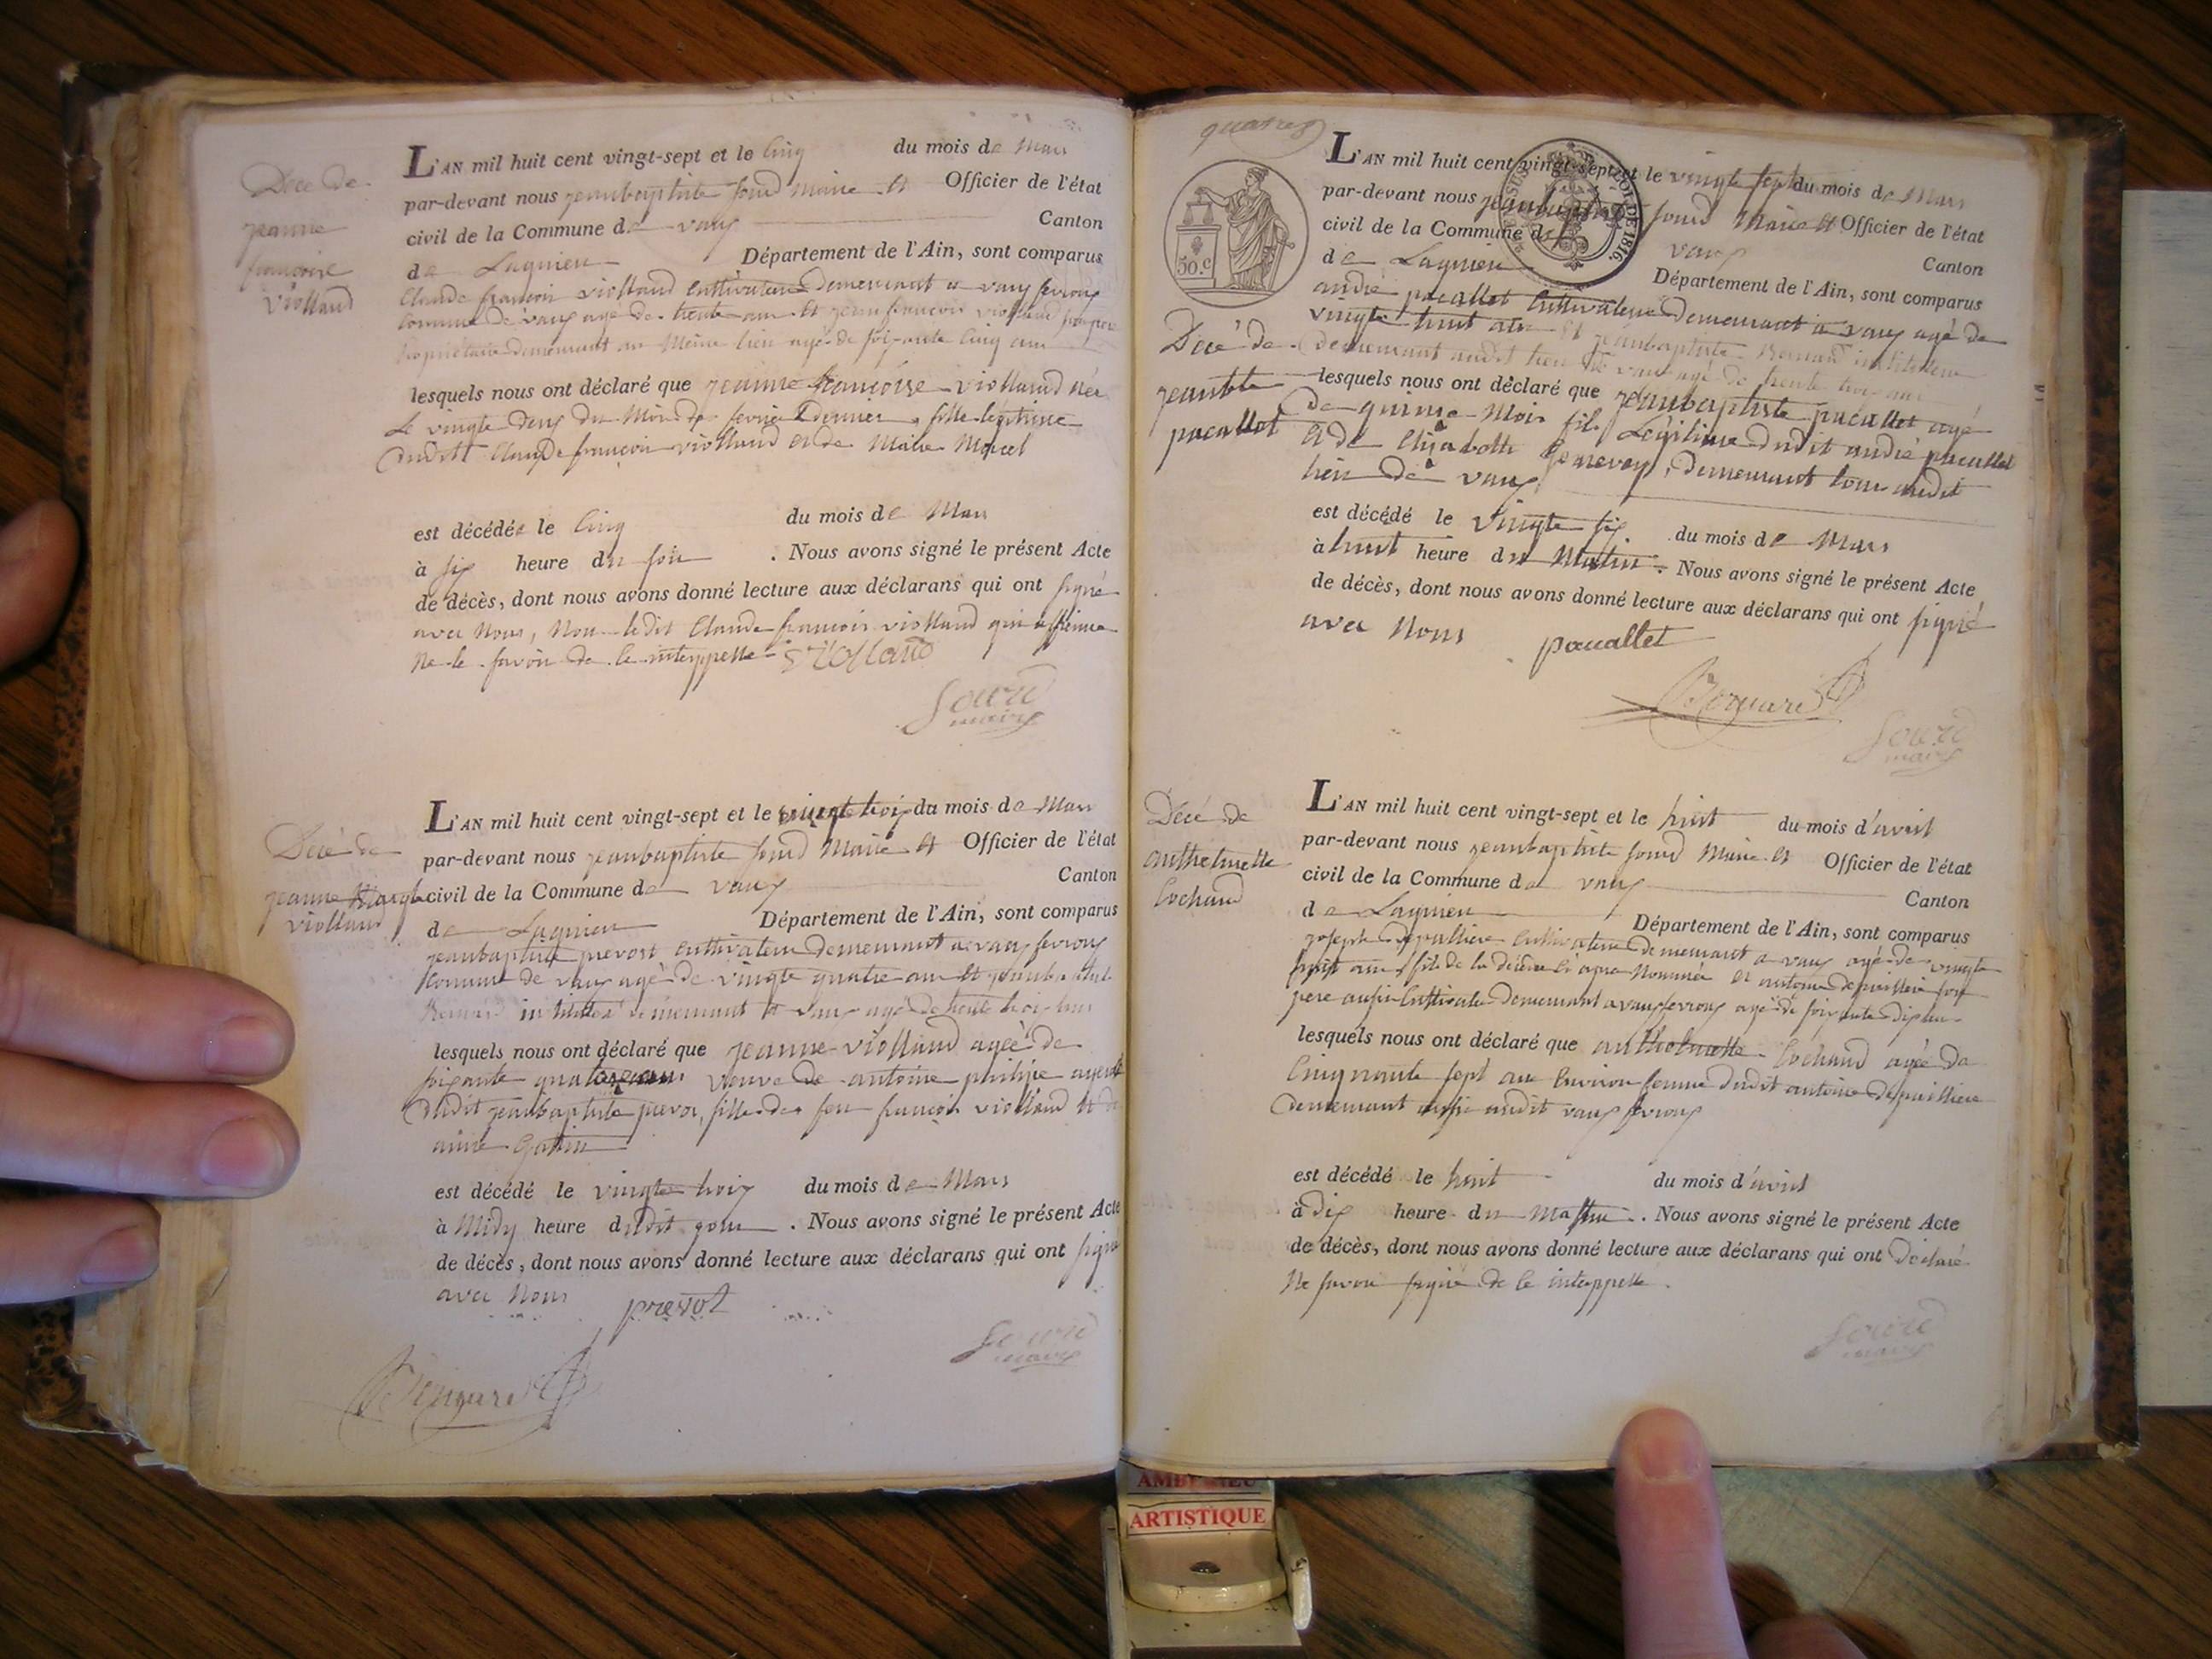 Décé de
jeanne
françoise
violland
L'AN mil huit cent vingt-sept et le Cinq du mois de Mars
par-devant nous jeanbaptiste fourd Maire et Officier de l'état
civil de la Commune de vaux Canton
de Lagnieu Département de l'Ain, sont comparus
Claude françois violland Cultivateur demeurant a vaux fevroux
Commune de vaux agé de trente ans Et jean françois violland
propriétaire demeurant au Même lieu agé de soixante Cinq ans
lesquels nous ont déclaré que jeanne françoise violland née
Le vingte deux du Mois de fevrier dernier, fille légitime
dudit Claude françois violland et de Marie Morcel
est décédée le Cinq du mois de Mars
à six heure du soir . Nous avons signé le présent Acte
de décès, dont nous avons donné lecture aux déclarans qui ont signé
avec Nous, Non ledit Claude françois violland qui affirme
Ne le savoir de ce interppellé violland
fourd
maire
Décé de
jeanne
violland
L'AN mil huit cent vingt-sept et le vingte trois du mois de Mars
par-devant nous jeanbaptiste fourd Maire et Officier de l'état
civil de la Commune de vaux Canton
de Lagnieu Département de l'Ain, sont comparus
jeanbaptiste prevost Cultivateur demeurant a vaux fevroux
Commune de vaux agé de vingte quatre ans Et jeanbaptiste
demeurant a vaux agé de trente trois ans
lesquels nous ont déclaré que jeanne violland agée de
soixante veuve de antoine philipe ayeule
dudit jeanbaptiste prevos, fille de feu françois violland et de
est décédé le vingte trois du mois de Mars
à Midy heure dudit jour . Nous avons signé le présent Acte
de décès, dont nous avons donné lecture aux déclarans qui ont signé
avec Nous prevot
fourd
maire
quatre
50.c
TIMBRE SUR LOI DE 1816.
L'AN mil huit cent vingt-sept et le vingte sept du mois de Mars
par-devant nous jeanbaptiste fourd Maire et Officier de l'état
civil de la Commune de vaux Canton
de Lagnieu Département de l'Ain, sont comparus
andré pacallet Cultivateur demeurant a vaux agé de
vingte huit ans Et jeanbaptiste instituteur
demeurant audit lieu de vaux agé de trente trois ans
Décé de
jeanbte
pacallet
lesquels nous ont déclaré que jeanbaptiste pacallet agé
de quinze Mois fils Légitime dudit andré pacallet
et de Elizabeth demeurant tous audit
lieu de vaux
est décédé le vingte six du mois de Mars
à huit heure du Matin . Nous avons signé le présent Acte
de décès, dont nous avons donné lecture aux déclarans qui ont signé
avec Nous pacallet
fourd
maire
Décé de
anthelmette
Cochaud
L'AN mil huit cent vingt-sept et le huit du mois d'avril
par-devant nous jeanbaptiste fourd Maire et Officier de l'état
civil de la Commune de vaux Canton
de Lagnieu Département de l'Ain, sont comparus
joseph depailliere Cultivateur demeurant a vaux agé de vingte
huit ans fils de la décédée Ci apres Nommée et antoine depailliere son
pere aussi Cultivateur demeurant a vaux fevroux agé de soixante dix ans
lesquels nous ont déclaré que anthelmette Cochaud agée de
Cinquante sept ans Environ femme dudit antoine depailliere
demeurant aussi audit vaux fevroux
est décédé le huit du mois d'avril
à dix heure du Matin . Nous avons signé le présent Acte
de décès, dont nous avons donné lecture aux déclarans qui ont déclaré
Ne savoir signé de ce interppellé.
fourd
maire
ARTISTIQUE